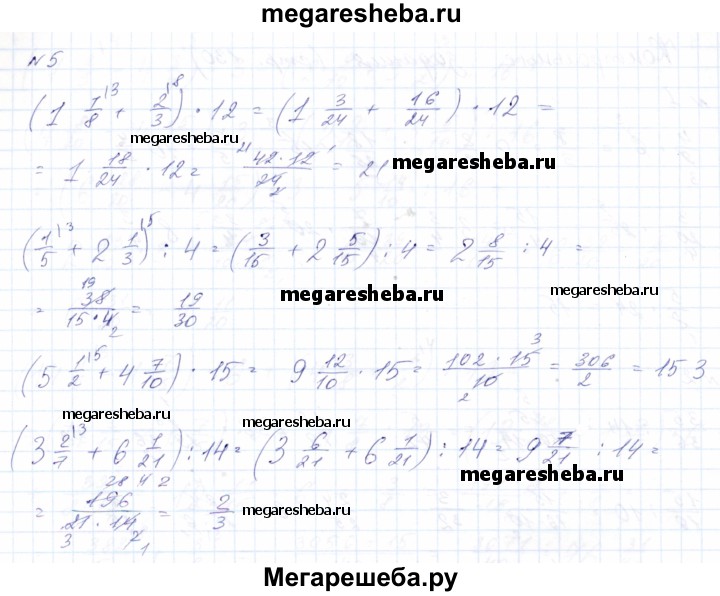 megaresheba.ru
№5
(1 1/8 |3 + 2/3 |8) · 12 = (1 3/24 + 16/24) · 12 =
megaresheba.ru megaresheba.ru
= 1 18/24 · 12 = 21 42·12 1/24 2 = 21 megaresheba.ru
(1/5 |3 + 2 1/3 |5) : 4 = (3/15 + 2 5/15) : 4 = 2 8/15 : 4 =
= 19 38/15·4 2 = 19/30 megaresheba.ru megaresheba.ru
(5 1/2 |5 + 4 7/10) · 15 = 9 12/10 · 15 = 102·15 3/10 2 = 306/2 = 153
megaresheba.ru megaresheba.ru
(3 2/7 |3 + 6 1/21) : 14 = (3 6/21 + 6 1/21) : 14 = 9 7/21 : 14 =
megaresheba.ru
= 28 4 2 196/21·14 3 7 1 = 2/3 megaresheba.ru megaresheba.ru
Мегарешеба.ру